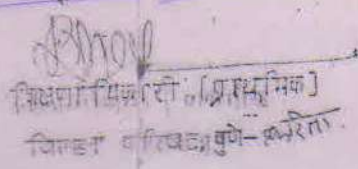 शिक्षणाधिकारी (प्राथमिक)
जिल्हा परिषद पुणे-करिता.